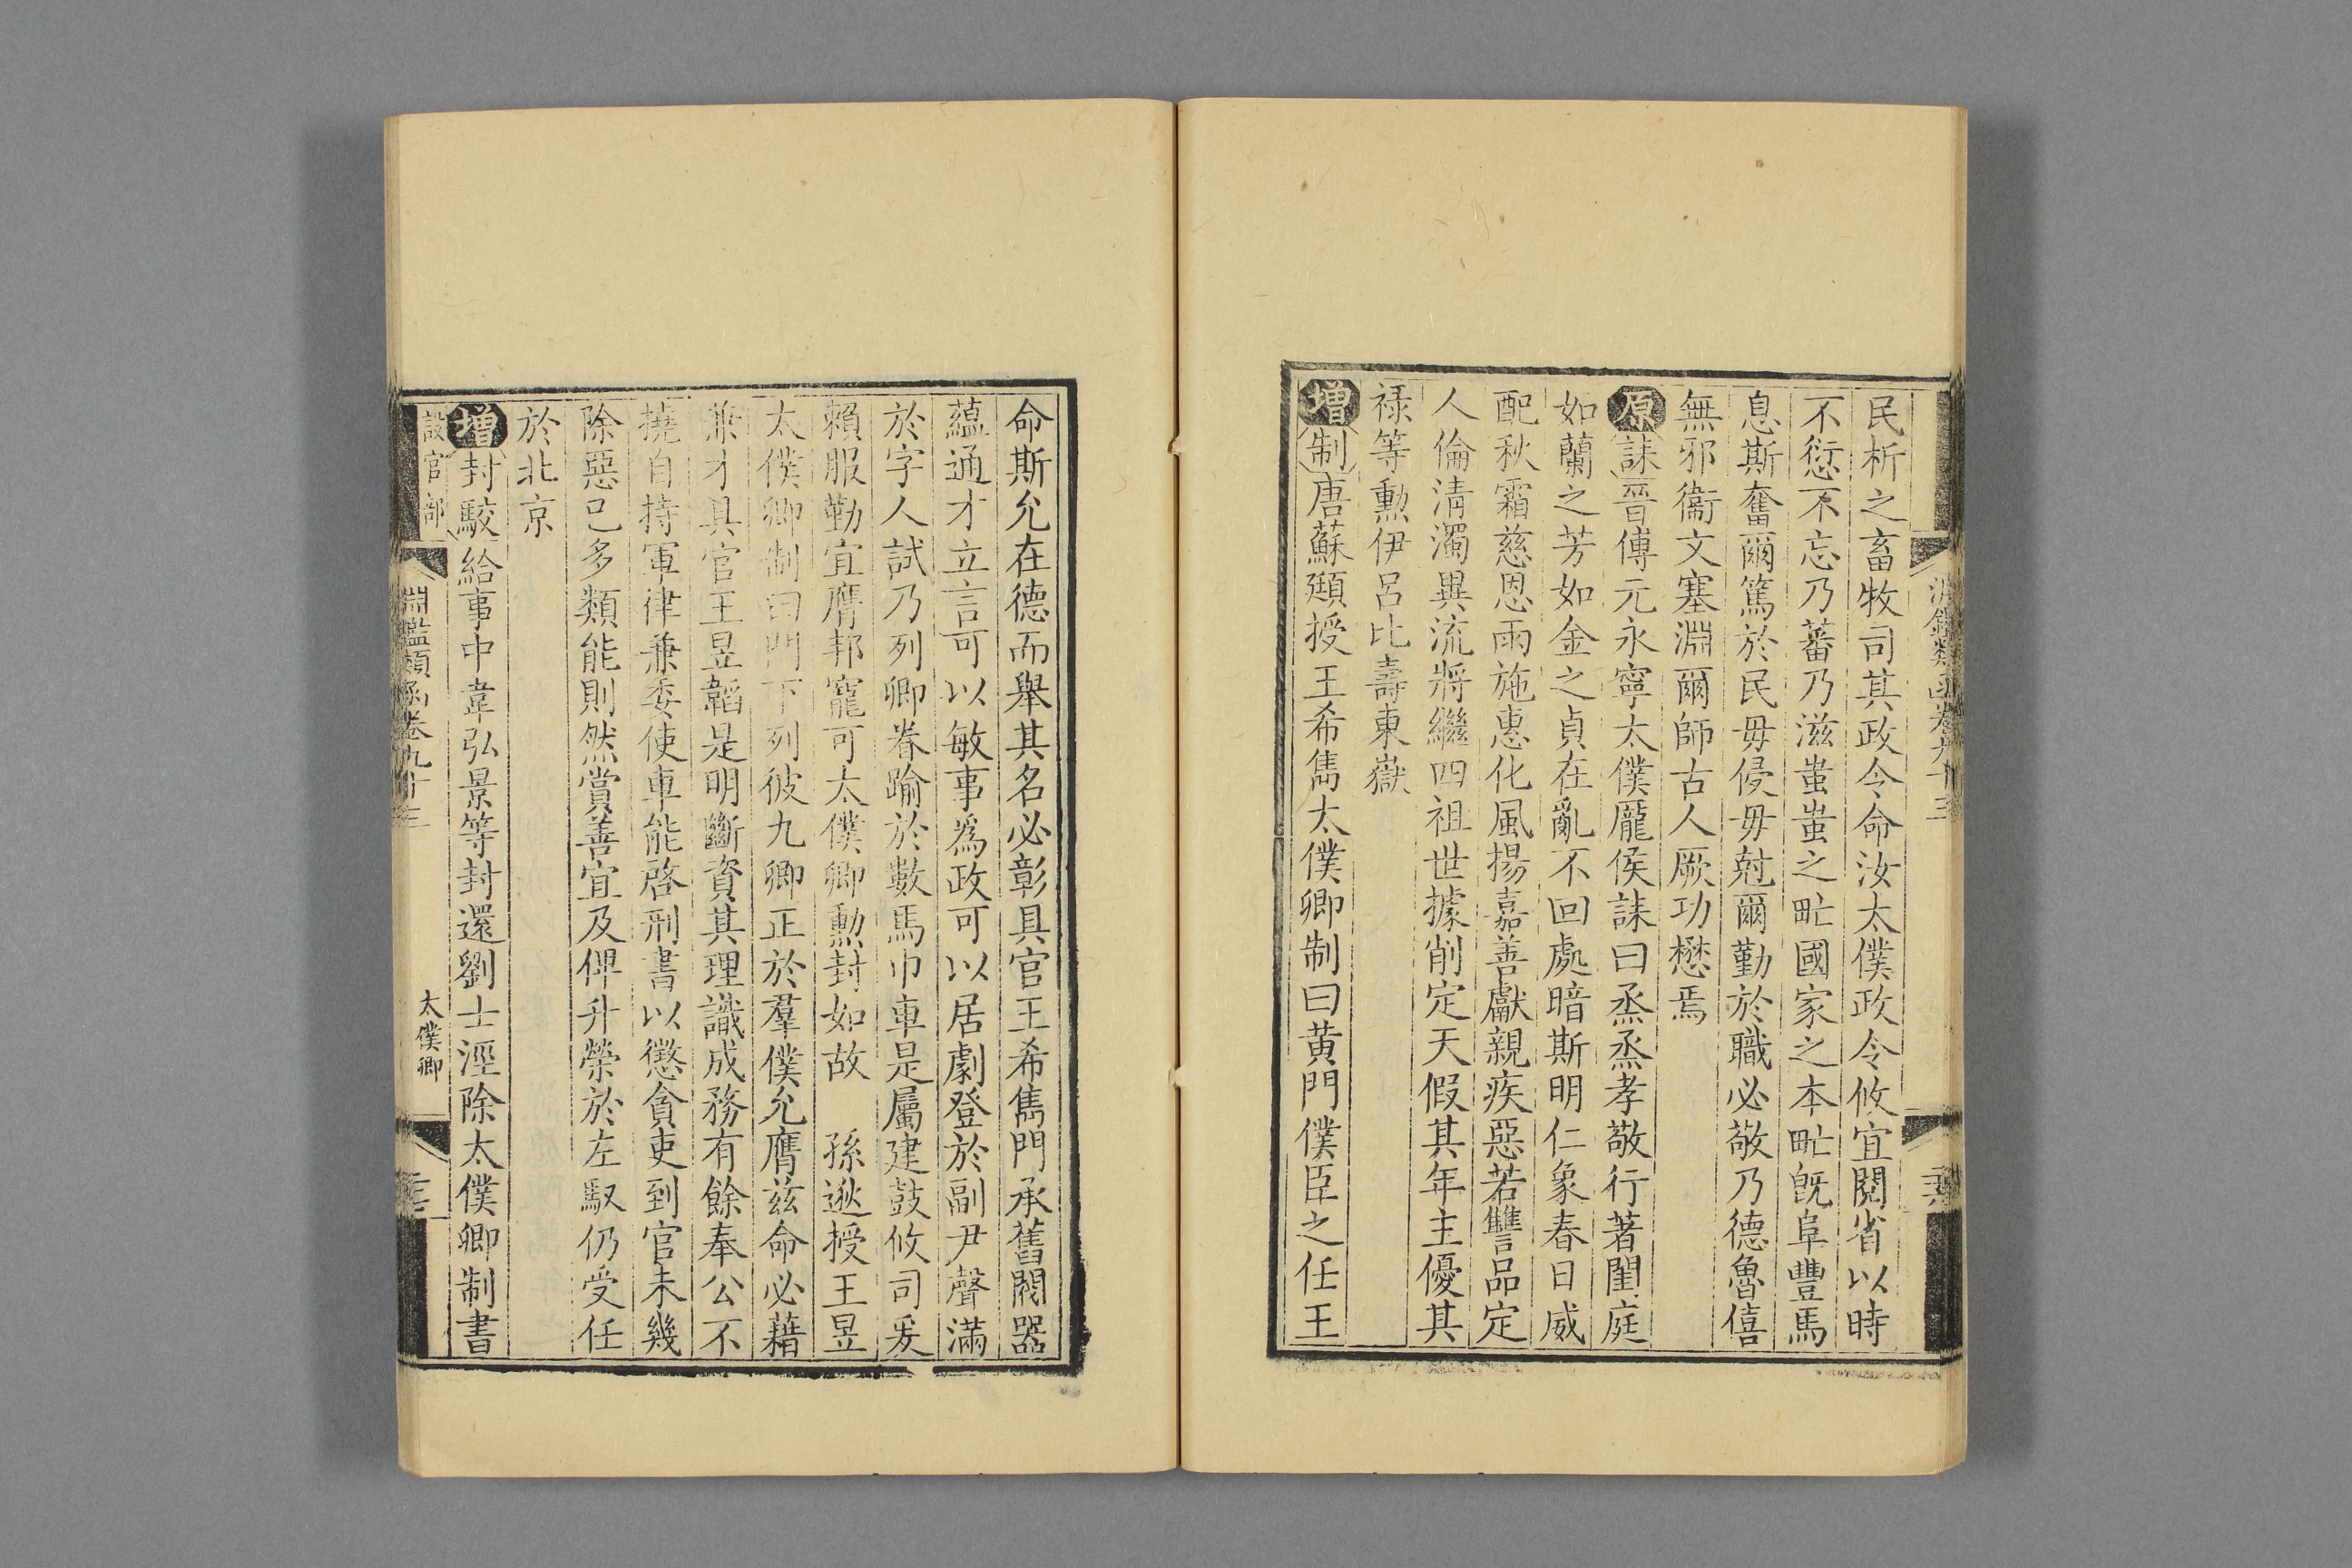 民析之畜牧司其政令命汝太僕政令攸宜閱省以時
不愆不忘乃蕃乃滋蚩蚩之甿國家之本甿旣阜豐馬
息斯奮爾篤於民毋侵毋尅爾勤於職必敬乃德魯僖
無邪衞文塞淵爾師古人厥功懋焉
原誄晉傅元永寧太僕龐侯誄曰烝烝孝敬行著閨庭
如蘭之芳如金之貞在亂不回處暗斯明仁象春日威
配秋霜慈恩雨施惠化風揚嘉善獻親疾惡若讐品定
人倫淸濁異流將繼四祖世據削定天假其年主優其
祿等勳伊呂比壽東嶽
增制唐蘇頲授王希雋太僕卿制曰黃門僕臣之任王
命斯允在德而舉其名必彰具官王希雋門承舊閥器
蘊通才立言可以敏事爲政可以居劇登於副尹聲滿
於字人試乃列卿眷踰於數馬巾車是屬建鼓攸司爰
賴服勤宜膺邦寵可太僕卿勳封如故 孫逖授王昱
太僕卿制曰門下列彼九卿正於羣僕允膺兹命必藉
兼才具官王昱韜是明斷資其理識成務有餘奉公不
撓自持軍律兼委使車能啓刑書以懲貪吏到官未幾
除惡已多類能則然賞善宜及俾升榮於左馭仍受任
於北京
增封駮給事中韋弘景等封還劉士涇除太僕卿制書
設官部
淵鑑類函卷九十三
太僕卿